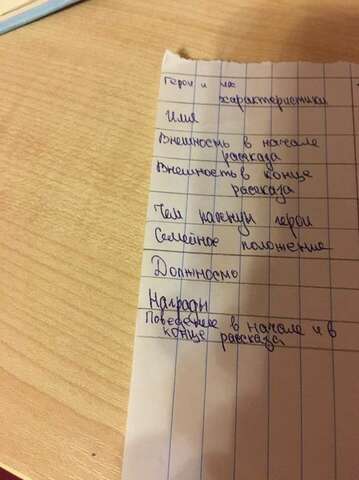 Герои и их
характеристики
Имя
Внешность в начале
рассказа
Внешность в конце
рассказа
Чем
герои
Семейное положение
Должность
Награды
Поведение в начале и в
конце рассказа